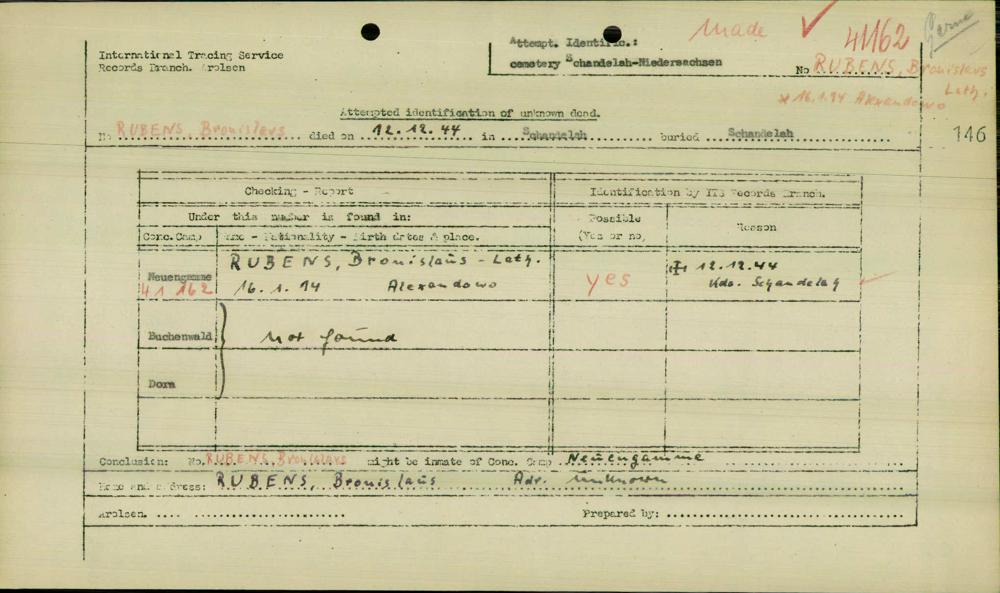 made ✓
Gerne
International Tracing Service
Records Branch. Arolsen
Attempt. Identific.:
cemetery Schandelah-Niedersachsen
41162
No RUBENS, Bronislavs
Leth.
* 16.1.94 Alexandowo
Attempted identification of unknown dead.
No RUBENS, Bronislavs died on 12.12.44 in Schandelah buried Schandelah
146
Checking - Report
Identification by ITS Records Branch.
Under this number is found in:
Possible
(Yes or no)
Reason
Conc. Camp
Name - Nationality - Birth dates & place.
Neuengamme
41 162
RUBENS, Bronislaūs - Leth.
16. 1. 94 Alexandowo
yes
12.12.44
Kdo. Schandelah
Buchenwald
not foūnd
Dora
Conclusion: No. RUBENS, Bronislavs might be inmate of Conc. Camp Neūengamme
Name and address: RUBENS, Bronislaūs Adr. ūnknown
Arolsen.
Prepared by: